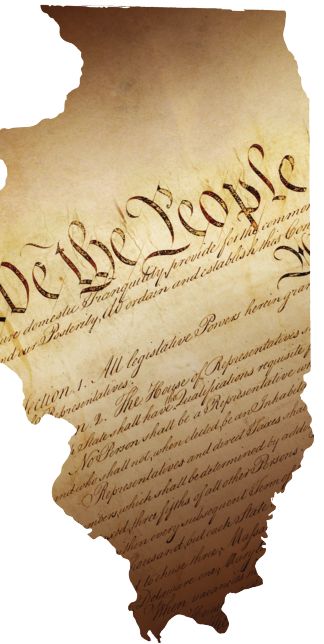 We the People
ure domestic Tranquility, provide for the common
and our Posterity, do ordain and establish this Con
Section. 1. All legislative Powers herein gran
Representatives.
2. The House of Representatives s
State shall have the Qualifications requisite f
No Person shall be a Representative w
and who shall not, when elected, be an Inhabit
Representatives and direct Taxes sha
umbers, which shall be determined by addin
three fifths of all other Persons
then every subsequent Term of
thousand, but each State
to chuse three, Massa
Delaware one, Maryl
When vacancies